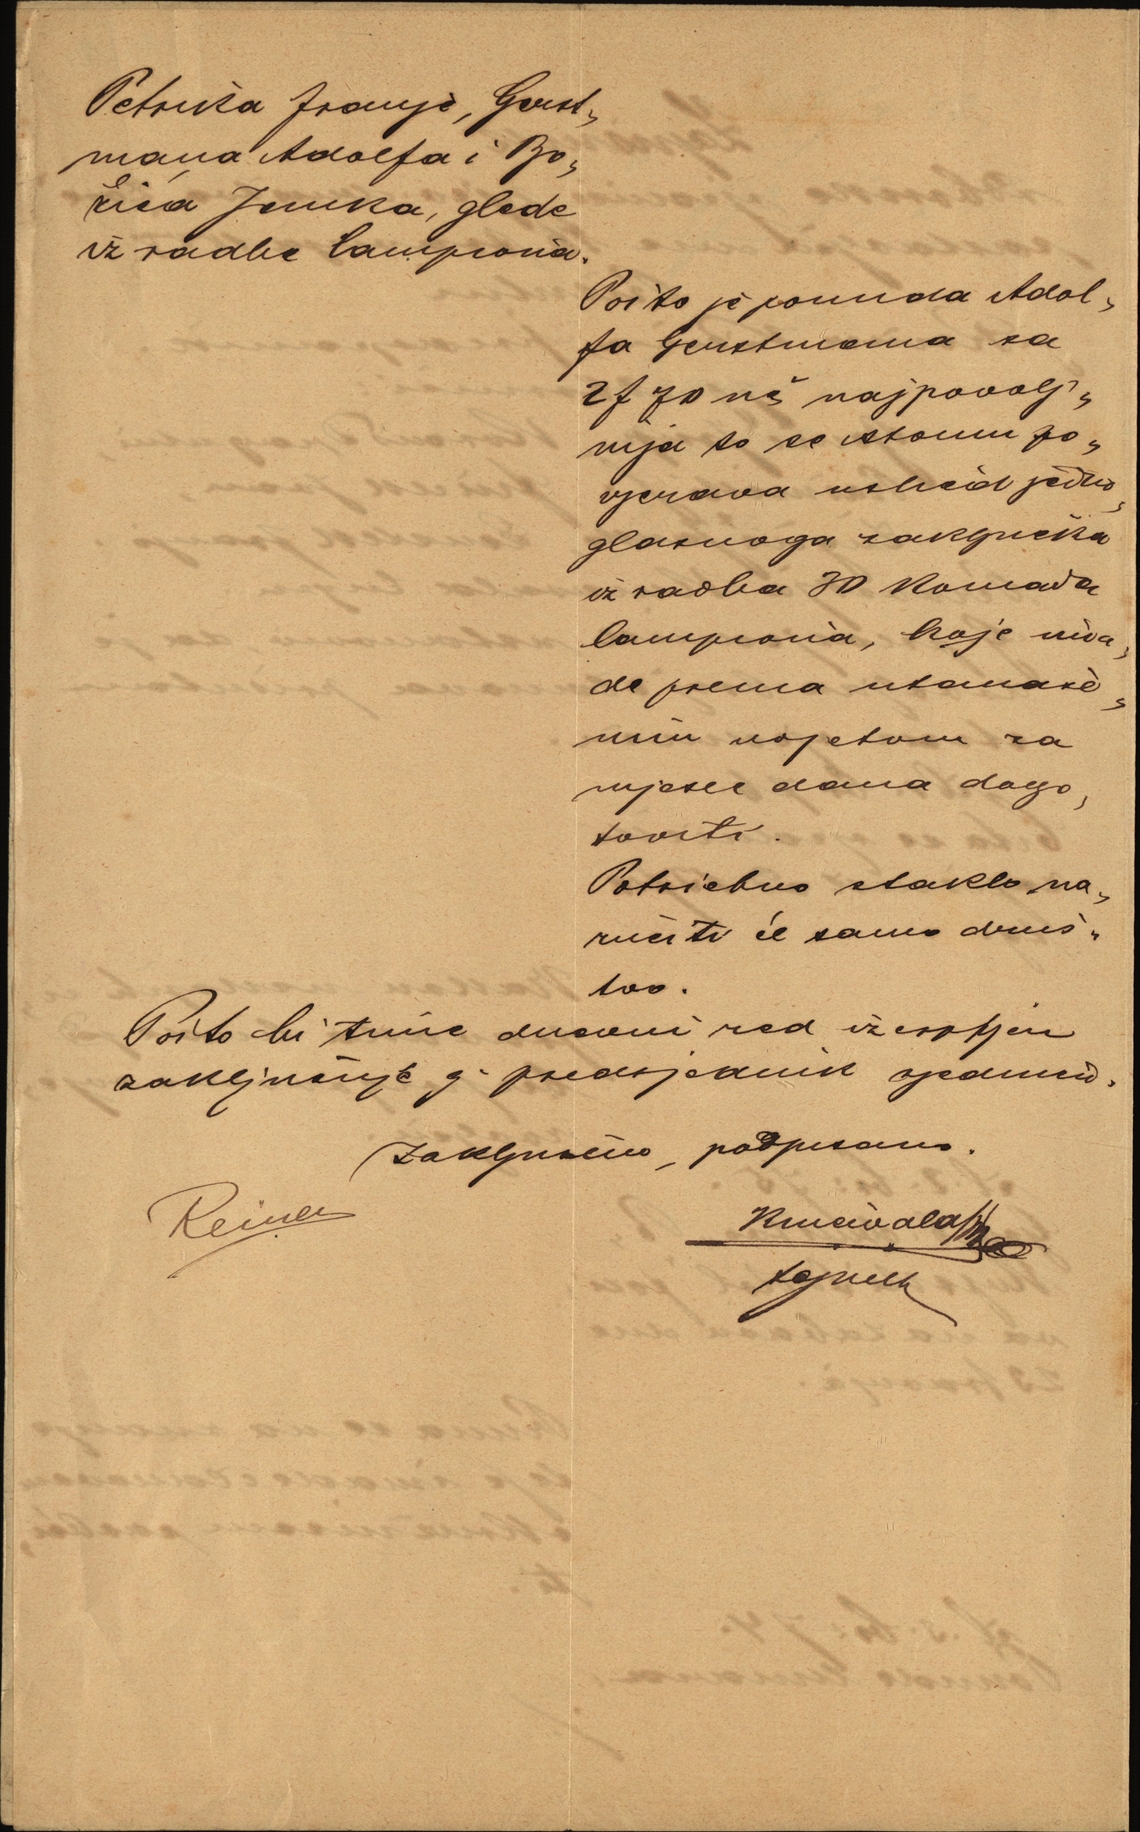 Petruša Franje, Gerst„
mana Adolfa i Bo„
žića Janka, glede
izradbe lampiona.
Pošto je ponuda Adol„
fa Gerstmana sa
2f 70 nč najpovolj„
nija to se istomu po„
vjerava usljed jedno„
glasnoga zaključka
izradba 30 komada
lampiona, koje ima„
de prema ustanovlje„
nim uvjetom za
mjesec dana dogo„
toviti.
Potriebno staklo na„
ručiti će samo druš„
tvo.
Pošto bi time dnevni red izcrpljen
zaključuje g. predsjednik sjednicu.
Zaključeno, podpisano.
Reiner